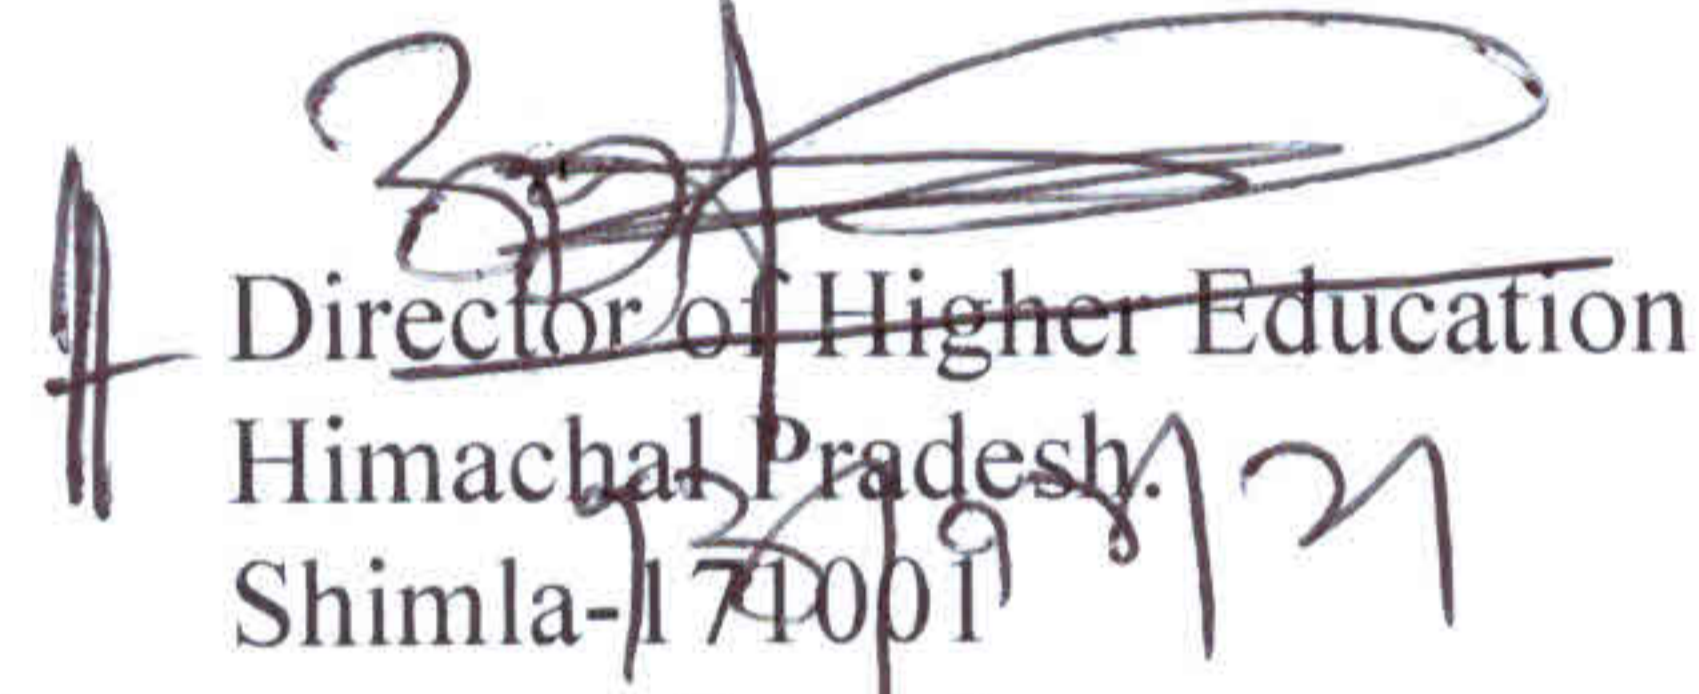 Director of Higher Education
Himachal Pradesh.
Shimla-171001